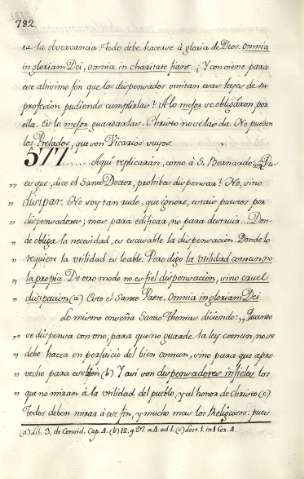 732
ra la observancia. Todo debe hacerse á gloria de Dios. omnia
in gloriam Dei, omnia in charitate fiant. ¿Y conviene para
ese altissimo fin que los dispensados omitan esas leyes de su
profesion pudiendo cumplirlas? A lo mejor se obligaron por
ella. Eso lo mejor guardarlas. Christo no las da. No pueden
los Prelados, que son Vicarios suyos.
577. Aqui replicarán, como á S. Bernardo:
que, dice el Santo Doctor, prohibes dispensar? No, sino
disipar. No soy tan rudo, que ignore, estais puestos por
dispensadores; mas para edificar, no para destruir. Don-
de obliga la necesidad, es escusable la dispensacion. Donde lo
requiere la utilidad es loable. Pero digo la utilidad comun, no
la propia. De otro modo no es fiel dispensacion, sino cruel
disipacion (a) Esto el Santo Padre. Omnia in gloriam Dei
lo mismo enseña Santo Thomas diciendo: Quando
se dispensa con otro, para que no guarde la ley comun, no se
debe hacer en perjuicio del bien comun, sino para que apro-
veche para ese bien (b) Y asi son dispensadores infieles los
que no miran á la utilidad del pueblo, y al honor de Christo (c)
Todos deben mirar á ese fin, y mucho mas los Religiosos: pues
(a) Lib. 3. de Consid. Cap. 4. (b) 1.2. q. 97. a. 4. ad 1. (c)